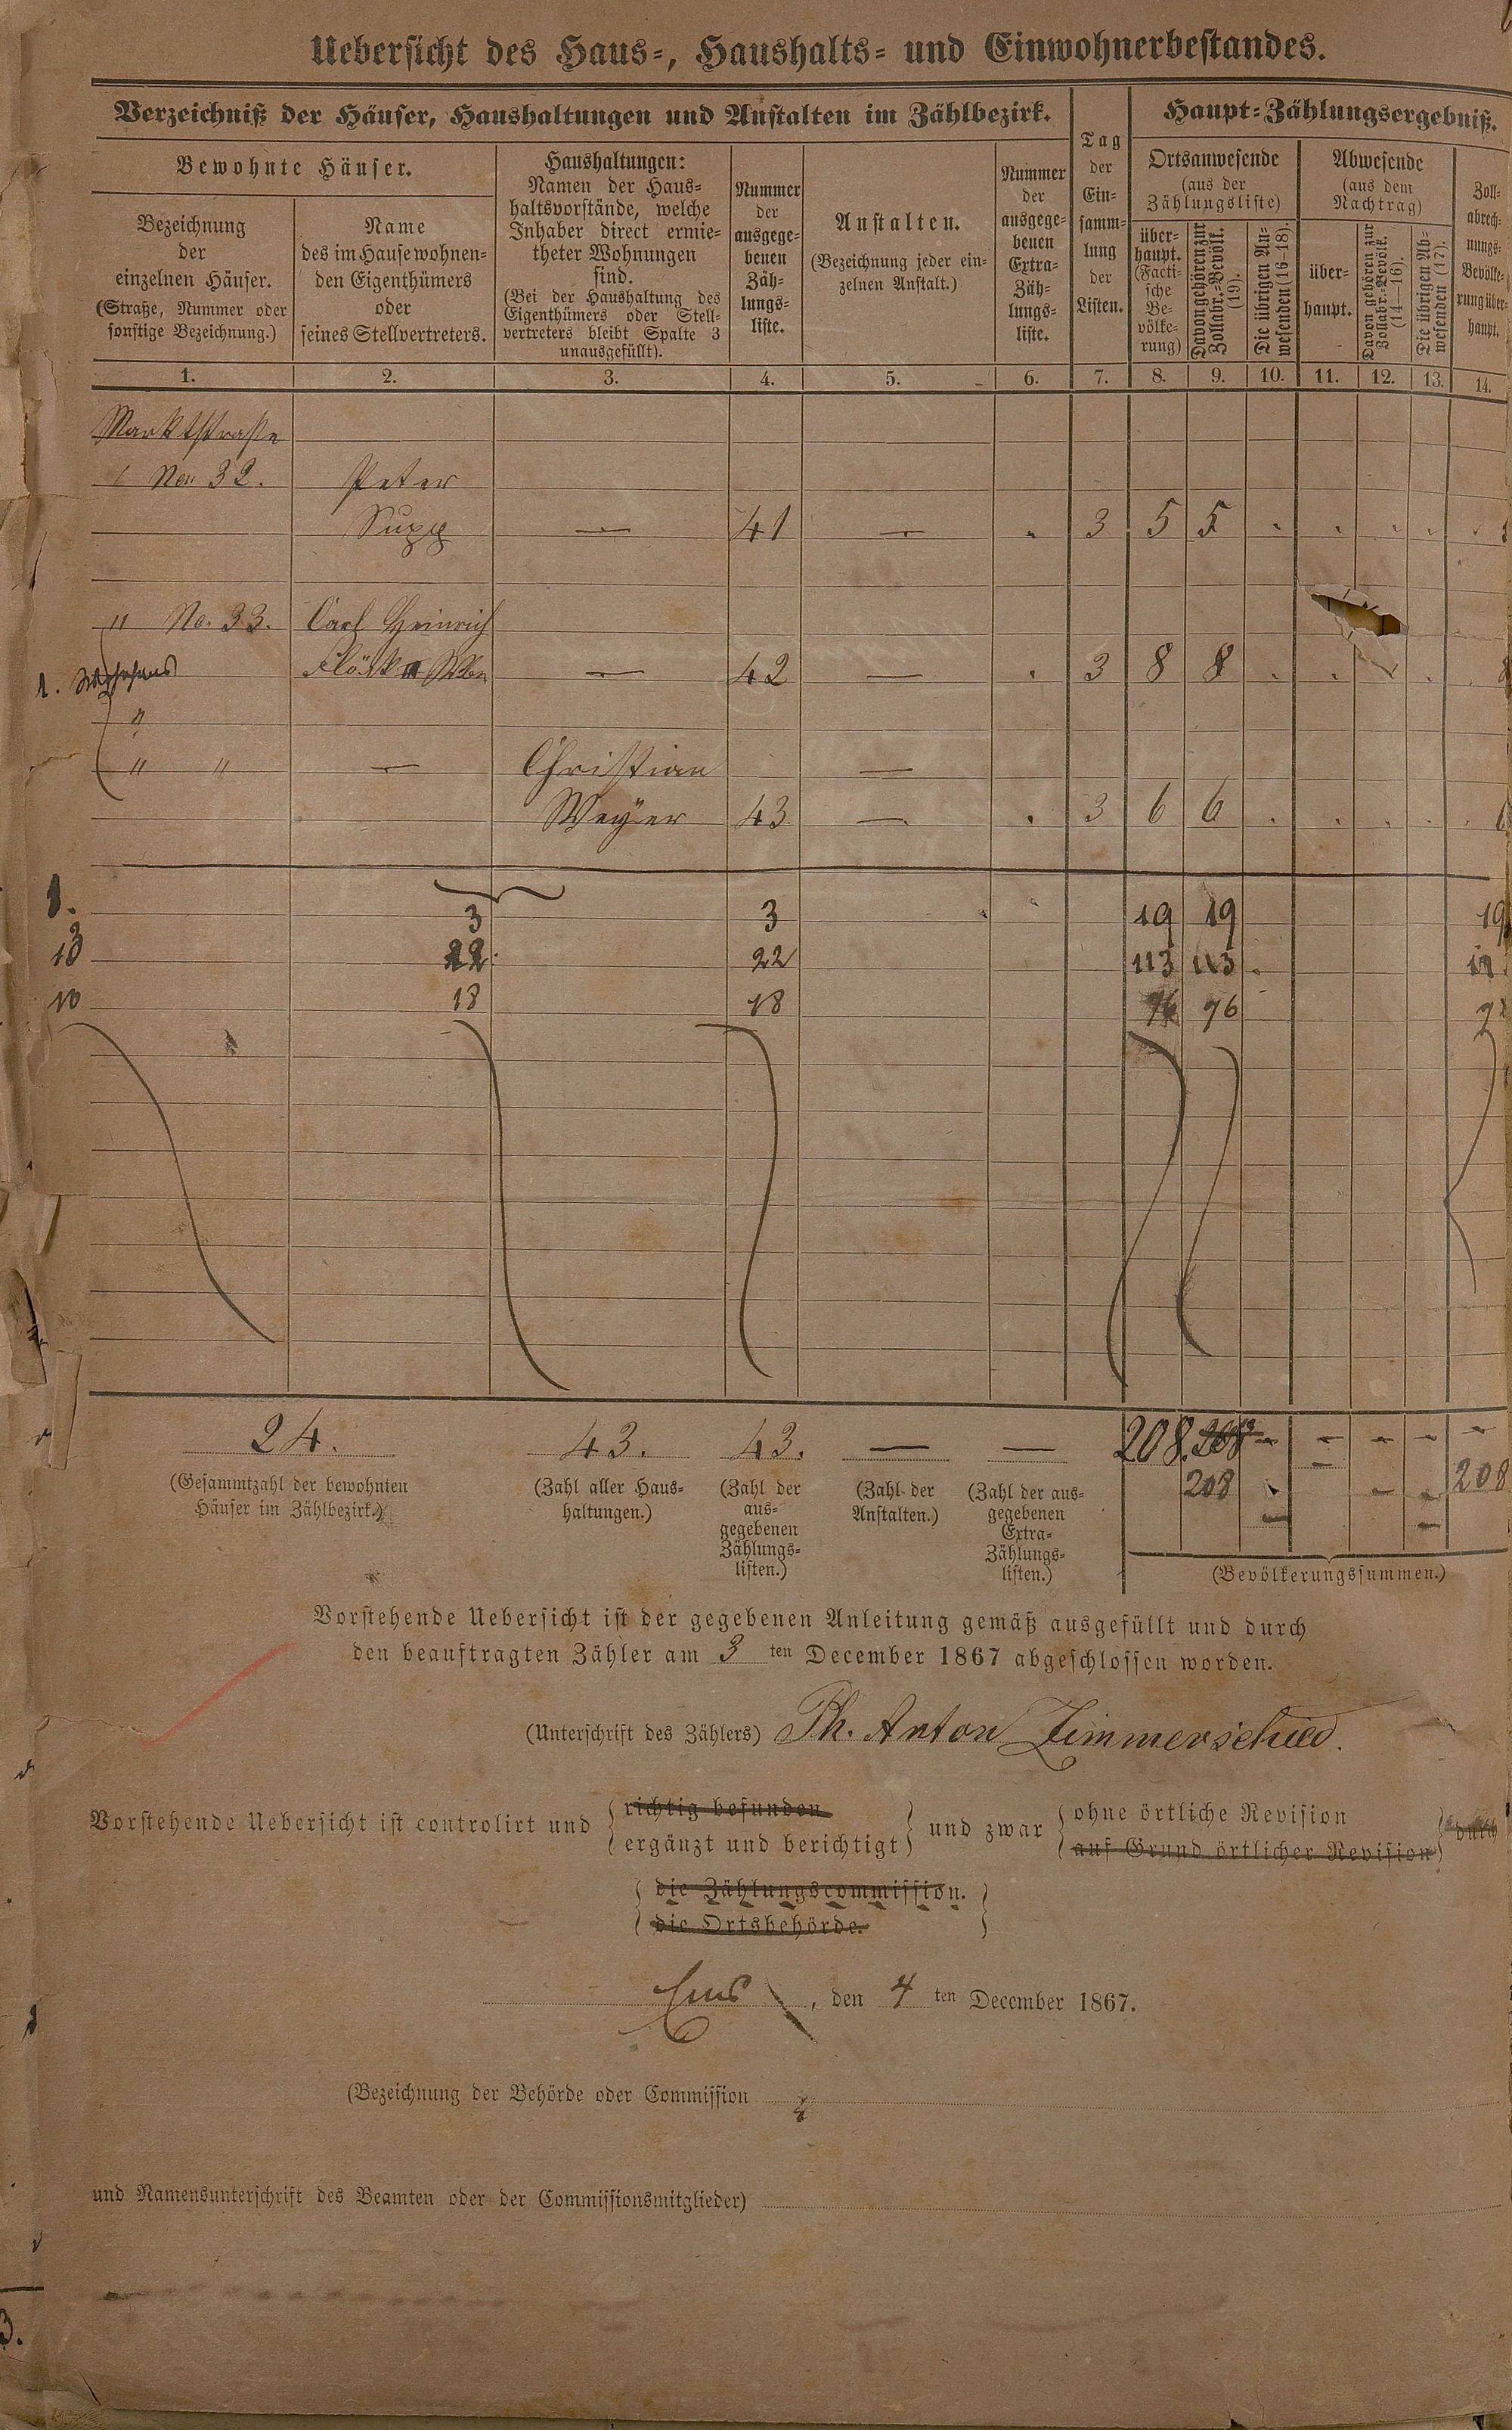 Uebersicht des Haus-, Haushalts- und Einwohnerbestandes.
Verzeichniß der Häuser, Haushaltungen und Anstalten im Zählbezirk.
Haupt-Zählungsergebniß.
Bewohnte Häuser.
Bezeichnung
der
einzelnen Häuser.
(Straße, Nummer oder
sonstige Bezeichnung.)
Name
des im Hause wohnen-
den Eigenthümers
oder
seines Stellvertreters.
Haushaltungen:
Namen der Haus-
haltsvorstände, welche
Inhaber direct ermie-
theter Wohnungen
sind.
(Bei der Haushaltung des
Eigenthümers oder Stell-
vertreters bleibt Spalte 3
unausgefüllt).
Nummer
der
ausgege-
benen
Zäh-
lungs-
liste.
Anstalten.
(Bezeichnung jeder ein-
zelnen Anstalt.)
Nummer
der
ausgege-
benen
Extra-
Zäh-
lungs-
liste.
Tag
der
Ein-
samm-
lung
der
Listen.
Ortsanwesende
(aus der
Zählungsliste)
über-
haupt.
(Facti-
sche
Be-
völke-
rung)
Davon gehören zur
Zollabr.-Bevölk.
(19).
Die übrigen An-
wesenden (16-18).
Abwesende
(aus dem
Nachtrag)
über-
haupt.
Davon gehören zur
Zollabr.-Bevölk.
(14-16).
Die übrigen Ab-
wesenden (17).
Zoll-
abrech-
nungs-
Bevölke-
rung über-
haupt.
1. 2. 3. 4. 5. 6. 7. 8. 9. 10. 11. 12. 13. 14.
Marktstraße
No. 32. Peter
Supp — 41 — 3 5 5
" No. 33. Carl Heinrich
1. — 42 — 3 8 8
"
" " — Christian —
Weyer 43 — 3 6 6
1. 3 3 19 19 19
13 22 22 113 113
10 18 18 76 76
24. 43. 43. — — 208. — — — — —
208 — — 208
(Gesammtzahl der bewohnten
Häuser im Zählbezirk.)
(Zahl aller Haus-
haltungen.)
(Zahl der
aus-
gegebenen
Zählungs-
listen.)
(Zahl der
Anstalten.)
(Zahl der aus-
gegebenen
Extra-
Zählungs-
listen.)
(Bevölkerungssummen.)
Vorstehende Uebersicht ist der gegebenen Anleitung gemäß ausgefüllt und durch
den beauftragten Zähler am 3 ten December 1867 abgeschlossen worden.
(Unterschrift des Zählers) Ph. Anton Zimmerschied.
richtig befunden
ohne örtliche Revision
Vorstehende Uebersicht ist controlirt und
und zwar
durch
ergänzt und berichtigt
auf Grund örtlicher Revision
die Zählungscommission.
die Ortsbehörde.
Ems, den 4 ten December 1867.
(Bezeichnung der Behörde oder Commission
und Namensunterschrift des Beamten oder der Commissionsmitglieder)
3.